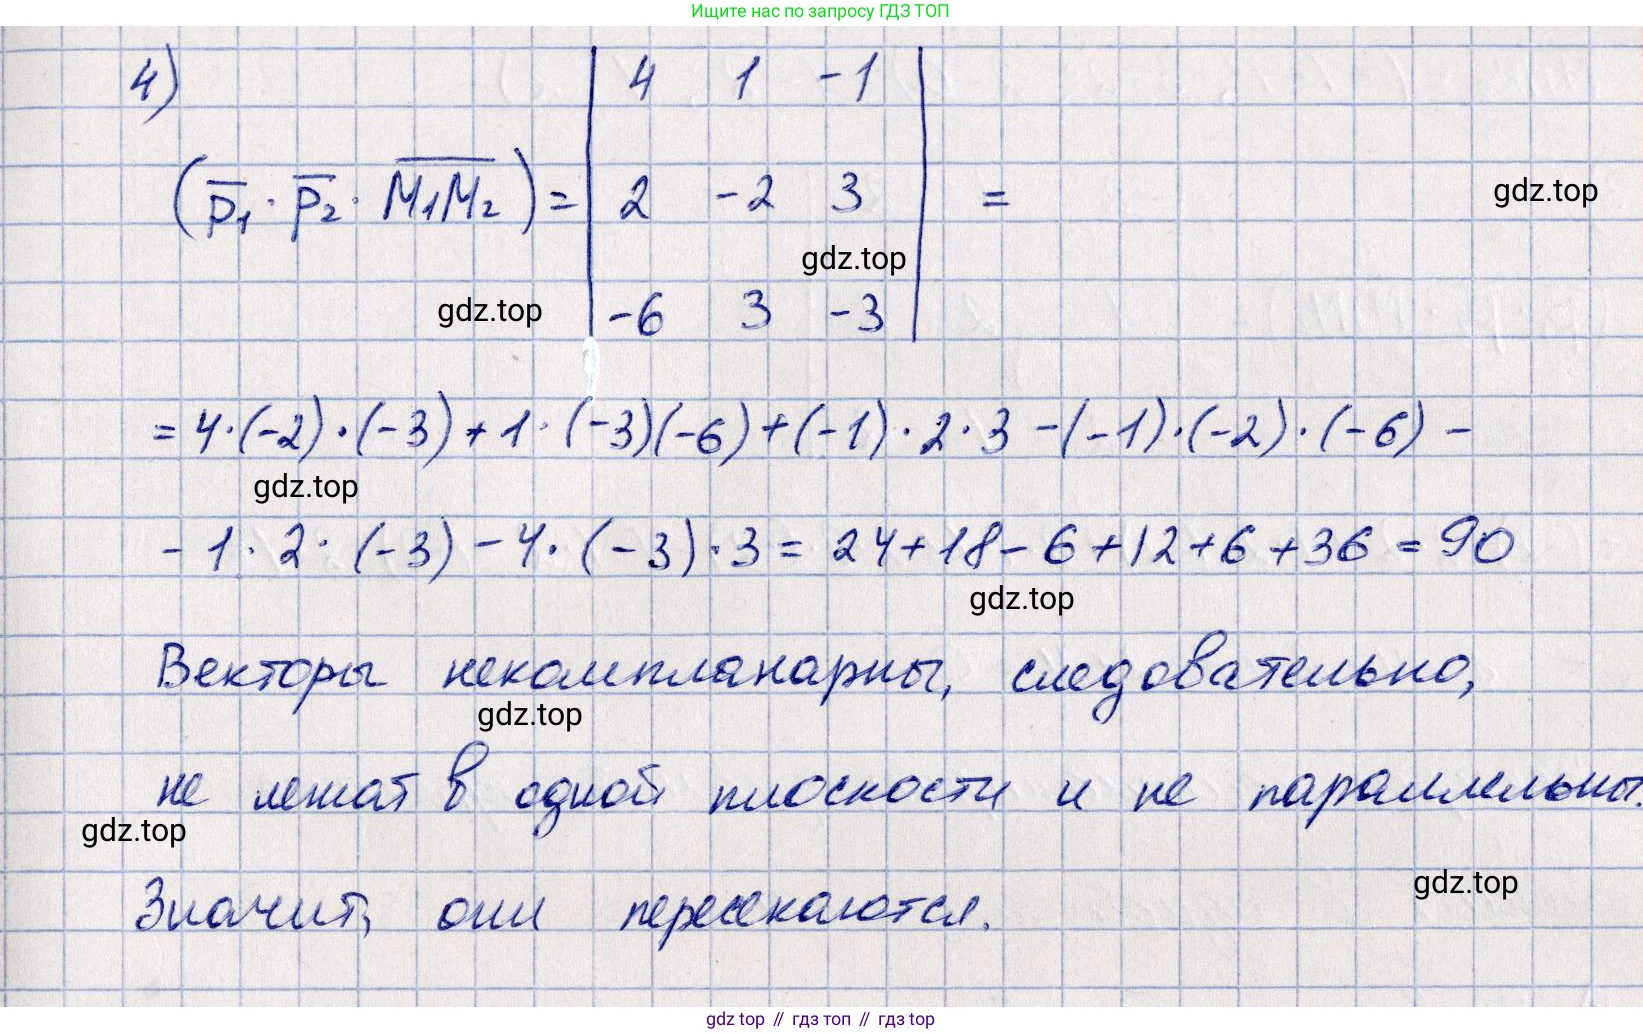 Ищите нас по запросу ГДЗ ТОП
4)
4 1 -1
(p̅₁ · p̅₂ · M̅₁M̅₂) = 2 -2 3 =
gdz.top
gdz.top
gdz.top
-6 3 -3
= 4·(-2)·(-3) + 1·(-3)(-6) + (-1)·2·3 - (-1)·(-2)·(-6) -
gdz.top
- 1·2·(-3) - 4·(-3)·3 = 24 + 18 - 6 + 12 + 6 + 36 = 90
gdz.top
Векторы некомпланарны, следовательно,
gdz.top
не лежат в одной плоскости и не параллельны.
gdz.top
gdz.top
Значит, они пересекаются.
gdz top // гдз топ // gdz top